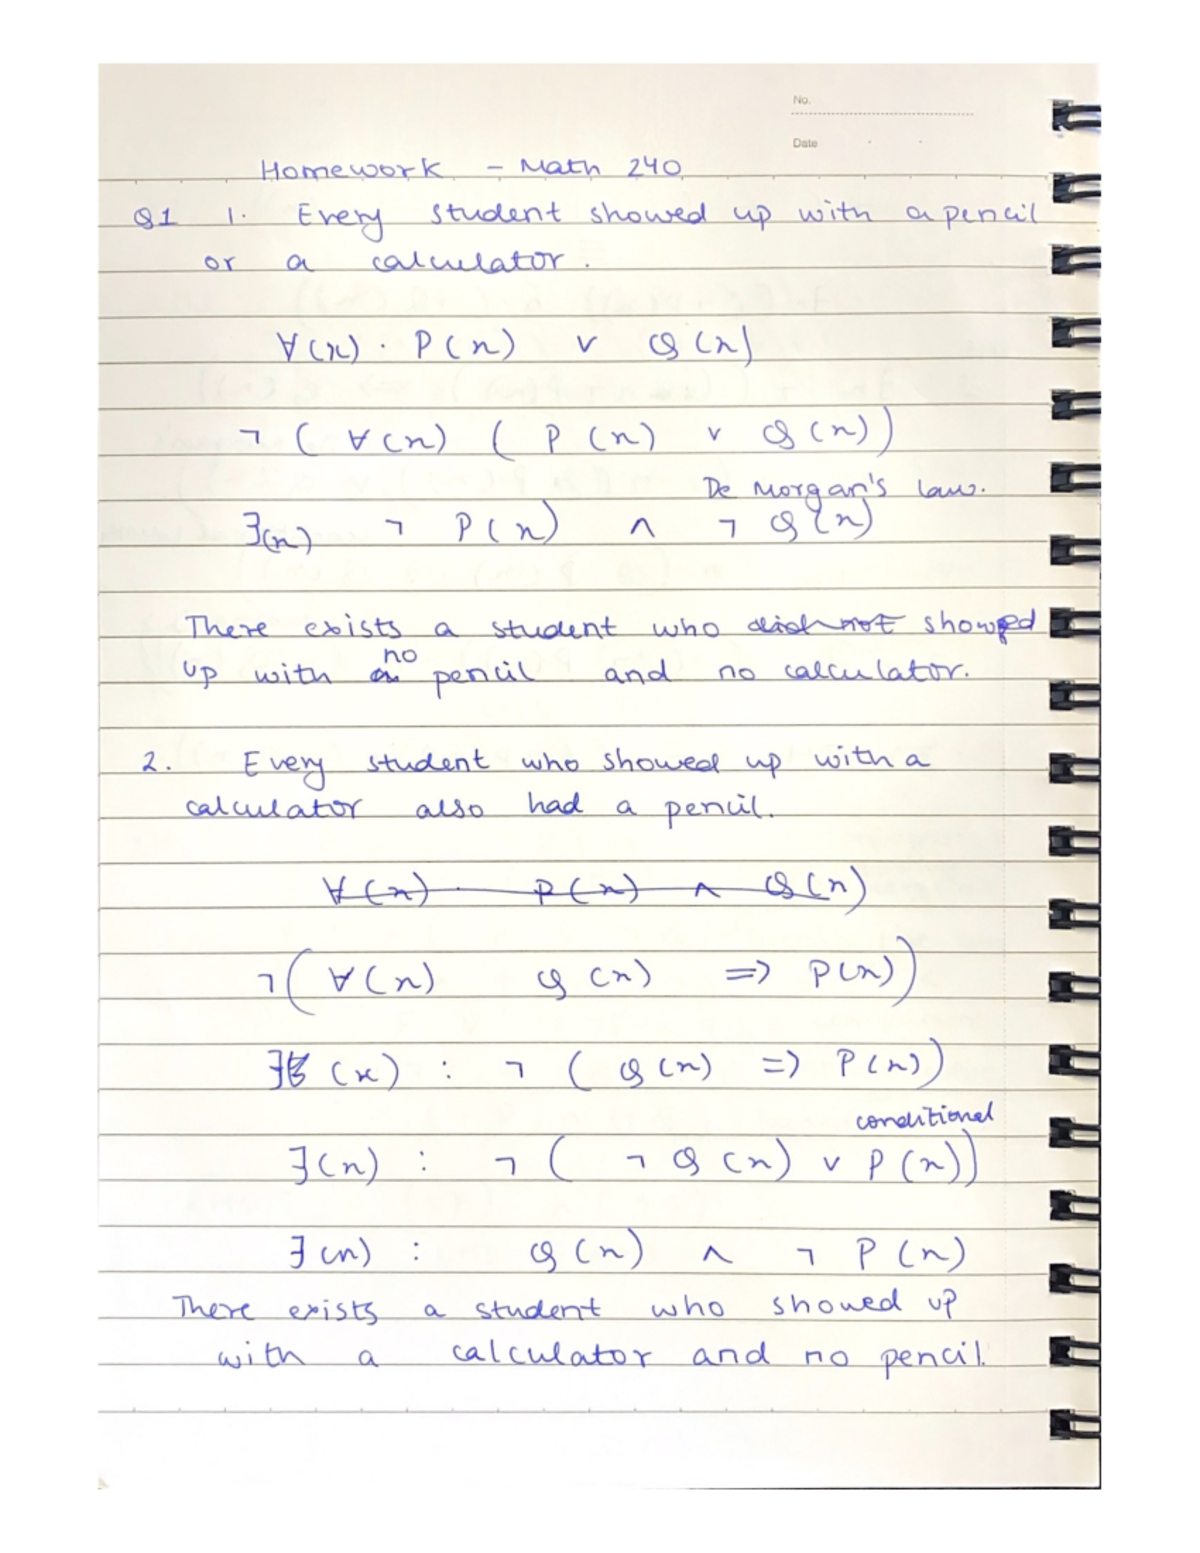 No.
Date
Homework - Math 240
Q1 1. Every student showed up with a pencil
or a calculator.
∀(x) . P(x) ∨ Q(x)
¬ ( ∀(x) ( P(x) ∨ Q(x))
De Morgan's law.
∃(x) ¬ P(x) ∧ ¬ Q(x)
There exists a student who did not showed
no
up with a pencil and no calculator.
2. Every student who showed up with a
calculator also had a pencil.
∀(x) . P(x) ∧ Q(x)
¬( ∀(x) Q(x) => P(x))
∃ (x) : ¬ ( Q(x) => P(x))
conditional
∃(x) : ¬ ( ¬ Q(x) ∨ P(x))
∃(x) : Q(x) ∧ ¬ P(x)
There exists a student who showed up
with a calculator and no pencil.